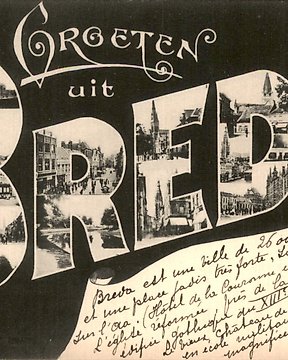 GROETEN
uit
BRED
Breda est une ville de 26 00
et une place jadis très forte,
sur l'Aa. Hôtel de la Couronne,
l'église réformée près de la
édifice gothique du XIIIe
Vieux Château de
en école militaire
magnifique